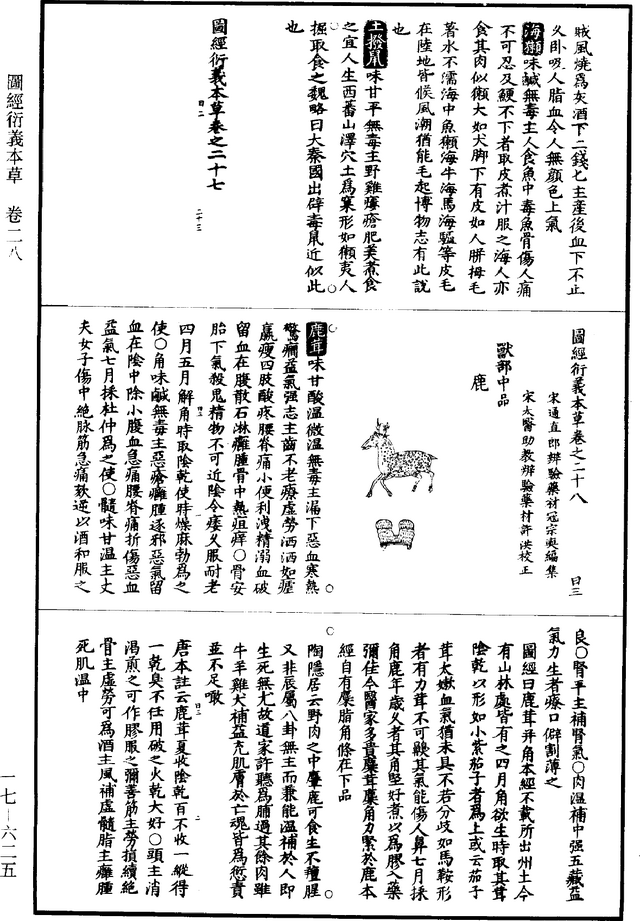 圖經衍義本草　卷二八
一七—六二五
賊風燒爲灰酒下二錢匕主產後血下不止
久卧吸人脂血令人無顏色上氣
海獺味鹹無毒主人食魚中毒魚骨傷人痛
不可忍及鯁不下者取皮煮汁服之海人亦
食其肉似獺大如犬脚下有皮如人胼拇毛
著水不濡海中魚獺海牛海馬海驢等皮毛
在陸地皆候風潮猶能毛起博物志有此說
也
土撥鼠味甘平無毒主野雞瘻瘡肥美煮食
之宜人生西蕃山澤穴土爲窠形如獺夷人
掘取食之魏略曰大秦國出辟毒鼠近似此
也
圖經衍義本草卷之二十七
圖經衍義本草卷之二十八　曰三
宋通直郎辨驗藥材寇宗奭編集
宋太醫助教辨驗藥材許洪校正
獸部中品
鹿
鹿茸味甘酸溫微溫無毒主漏下惡血寒熱
驚癇益氣强志主齒不老療虛勞洒洒如瘧
羸瘦四肢酸疼腰脊痛小便利洩精溺血破
留血在腹散石淋癰腫骨中熱疽痒○骨安
胎下氣殺鬼精物不可近陰令痿久服耐老
四月五月解角時取陰乾使時燥麻勃爲之
使○角味鹹無毒主惡瘡癰腫逐邪惡氣留
血在陰中除小腹血急痛腰脊痛折傷惡血
益氣七月採杜仲爲之使○髓味甘溫主丈
夫女子傷中絕脉筋急痛欬逆以酒和服之
良○腎平主補腎氣○肉溫補中强五藏益
氣力生者療口僻割薄之
圖經曰鹿茸并角本經不載所出州土今
有山林處皆有之四月角欲生時取其茸
陰乾以形如小紫茄子者爲上或云茄子
茸太嫩血氣猶未具不若分歧如馬鞍形
者有力茸不可齅其氣能傷人鼻七月採
角鹿年歲久者其角堅好煮以爲膠入藥
彌佳今醫家多貴麋茸麋角力緊於鹿本
經自有麋脂角條在下品
陶隱居云野肉之中麞鹿可食生不羶腥
又非辰屬八卦無主而兼能溫補於人即
生死無尤故道家許聽爲脯過其餘肉雖
牛羊雞犬補益充肌膚於亡魂皆爲愆責
並不足噉
唐本註云鹿茸夏收陰乾百不收一縱得
一乾臭不任用破之火乾大好○頭主消
渴煎之可作膠服之彌善筋主勞損續絕
骨主虛勞可爲酒主風補虛髓脂主癰腫
死肌溫中